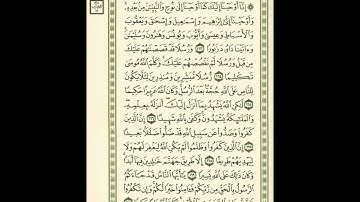 إِنَّا أَوْحَيْنَا إِلَيْكَ كَمَا أَوْحَيْنَا إِلَىٰ نُوحٍ وَالنَّبِيِّينَ مِنْ بَعْدِهِ
وَأَوْحَيْنَا إِلَىٰ إِبْرَاهِيمَ وَإِسْمَاعِيلَ وَإِسْحَاقَ وَيَعْقُوبَ
وَالْأَسْبَاطِ وَعِيسَىٰ وَأَيُّوبَ وَيُونُسَ وَهَارُونَ وَسُلَيْمَانَ
وَآتَيْنَا دَاوُودَ زَبُورًا وَرُسُلًا قَدْ قَصَصْنَاهُمْ عَلَيْكَ
مِنْ قَبْلُ وَرُسُلًا لَمْ نَقْصُصْهُمْ عَلَيْكَ وَكَلَّمَ اللَّهُ مُوسَىٰ
تَكْلِيمًا رُسُلًا مُبَشِّرِينَ وَمُنْذِرِينَ لِئَلَّا يَكُونَ
لِلنَّاسِ عَلَى اللَّهِ حُجَّةٌ بَعْدَ الرُّسُلِ وَكَانَ اللَّهُ عَزِيزًا حَكِيمًا
لَٰكِنِ اللَّهُ يَشْهَدُ بِمَا أَنْزَلَ إِلَيْكَ أَنْزَلَهُ بِعِلْمِهِ
وَالْمَلَائِكَةُ يَشْهَدُونَ وَكَفَىٰ بِاللَّهِ شَهِيدًا إِنَّ الَّذِينَ
كَفَرُوا وَصَدُّوا عَنْ سَبِيلِ اللَّهِ قَدْ ضَلُّوا ضَلَالًا بَعِيدًا
إِنَّ الَّذِينَ كَفَرُوا وَظَلَمُوا لَمْ يَكُنِ اللَّهُ لِيَغْفِرَ لَهُمْ وَلَا
لِيَهْدِيَهُمْ طَرِيقًا إِلَّا طَرِيقَ جَهَنَّمَ خَالِدِينَ فِيهَا أَبَدًا
وَكَانَ ذَٰلِكَ عَلَى اللَّهِ يَسِيرًا يَا أَيُّهَا النَّاسُ قَدْ جَاءَكُمُ
الرَّسُولُ بِالْحَقِّ مِنْ رَبِّكُمْ فَآمِنُوا خَيْرًا لَكُمْ وَإِنْ تَكْفُرُوا